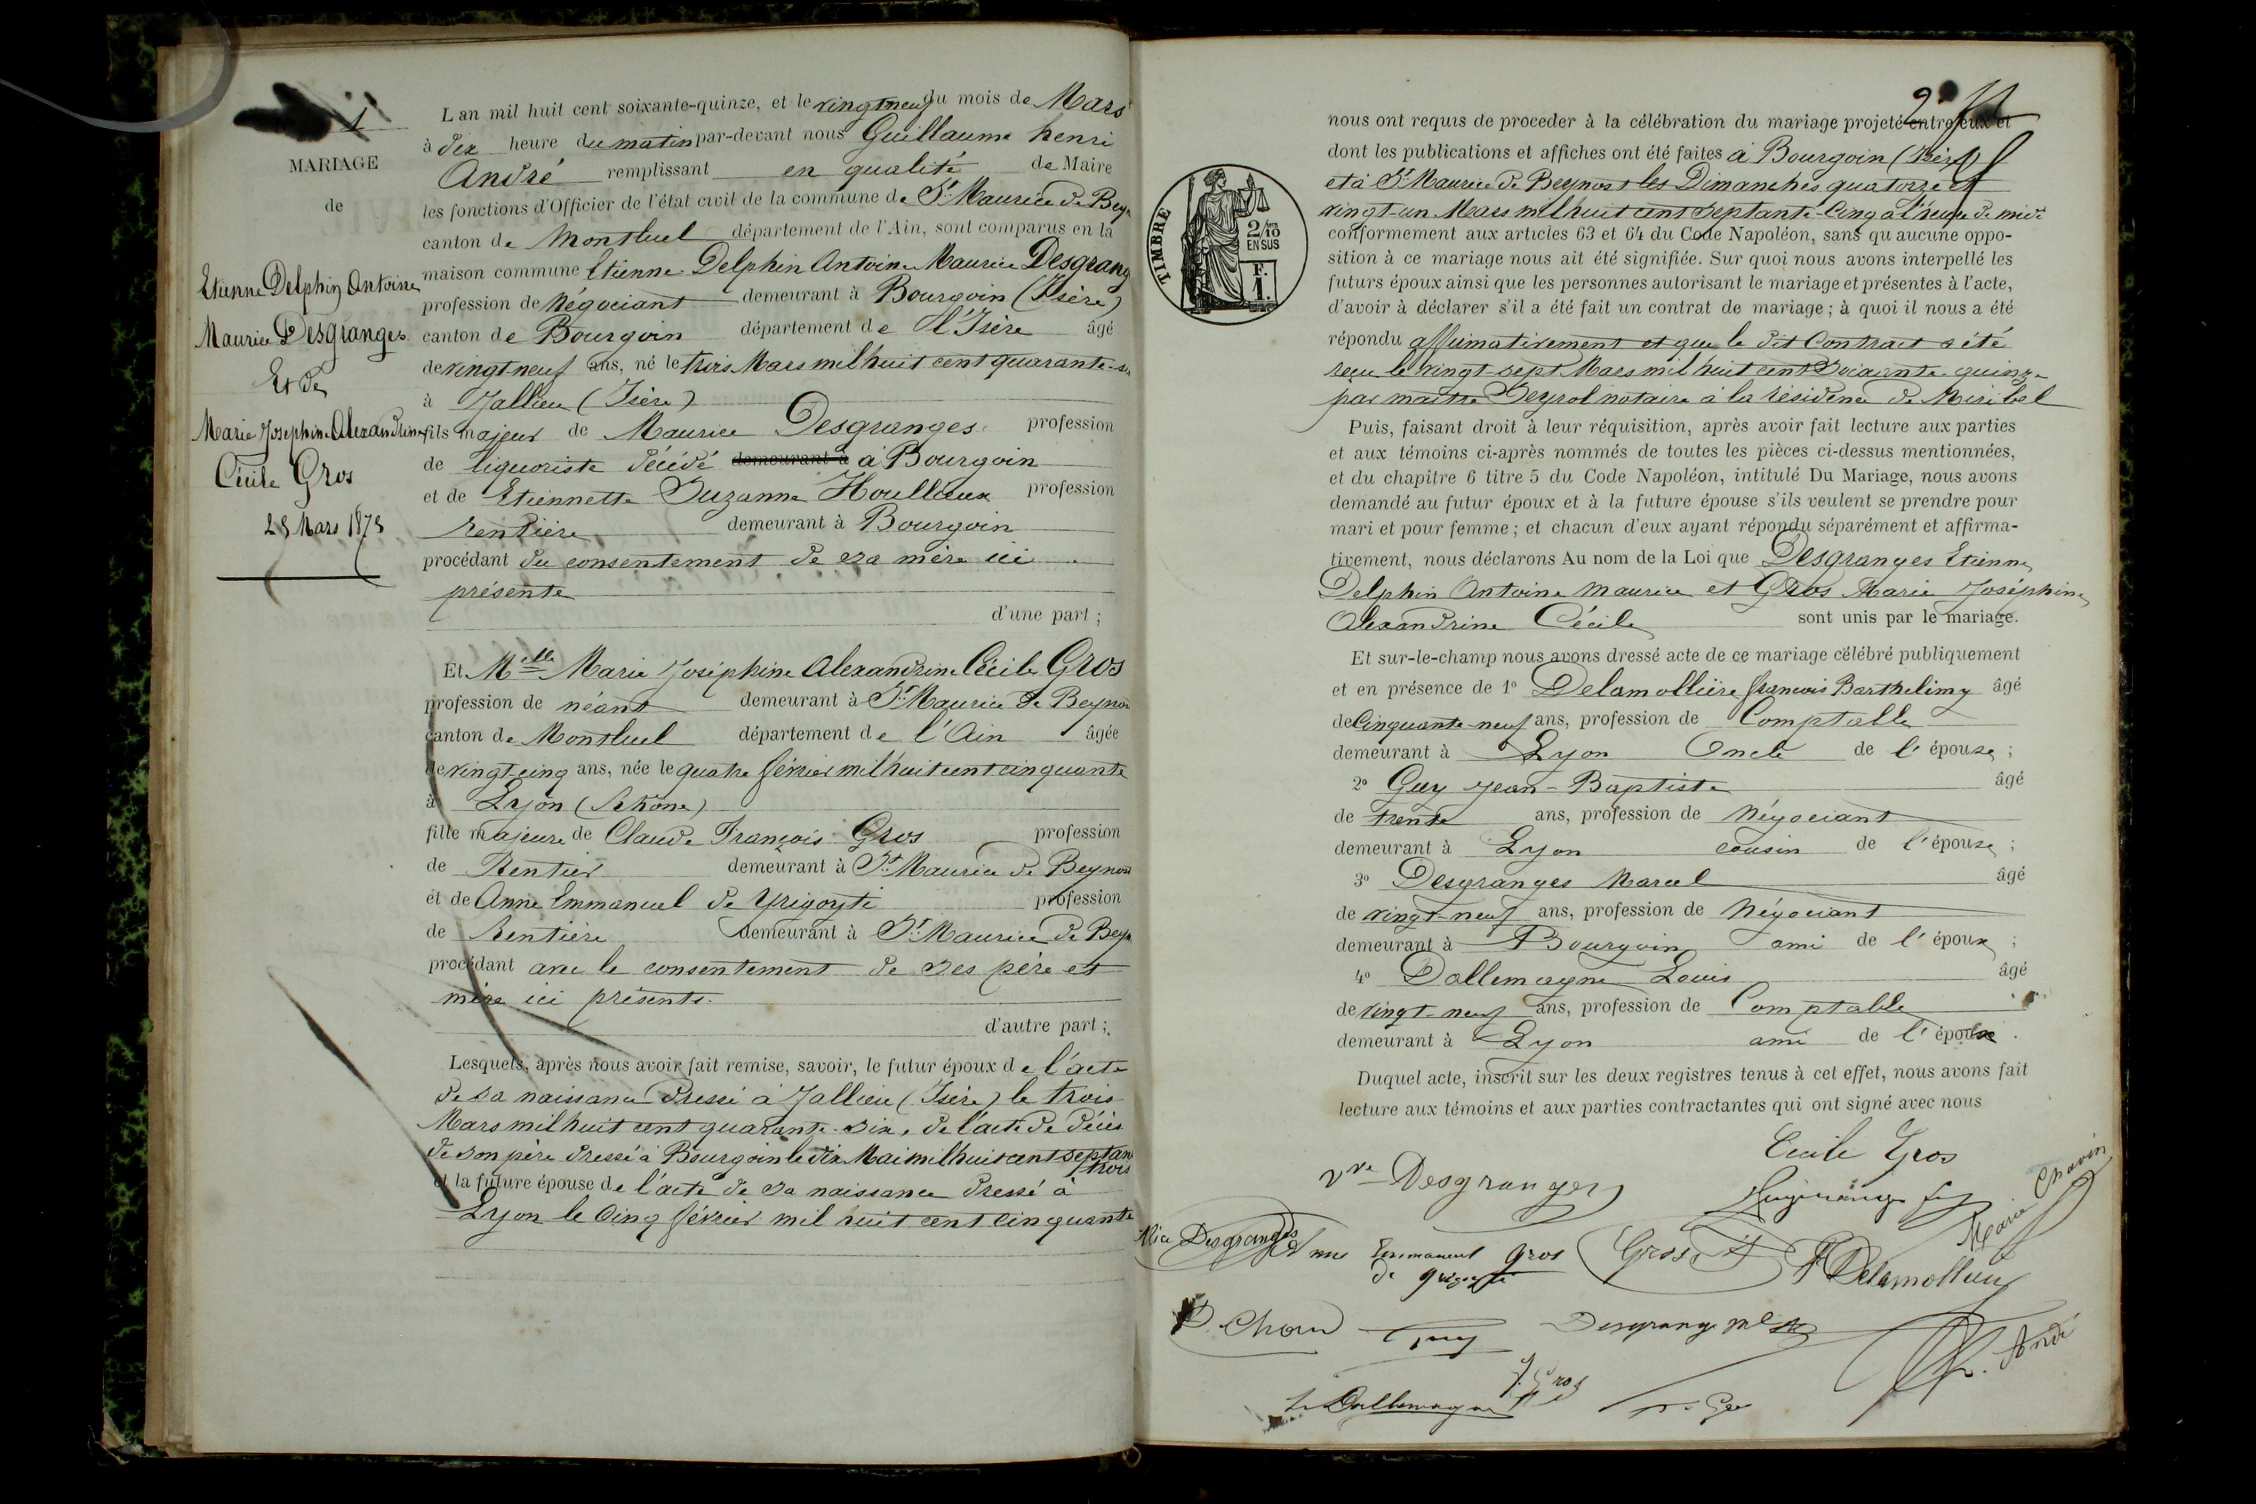 1
MARIAGE
de
Etienne Delphin Antoine
Maurice Desgranges
Et de
Marie Joséphine Alexandrine
Cécile Gros
29 Mars 1875
L'an mil huit cent soixante-quinze, et le vingt neuf du mois de Mars
à dix heure du matin par-devant nous Guillaume henri
André remplissant en qualité de Maire
les fonctions d'Officier de l'état civil de la commune de St Maurice de Bey
canton de Montluel département de l'Ain, sont comparus en la
maison commune Etienne Delphin Antoine Maurice Desgrang
profession de Négociant demeurant à Bourgoin (Isère)
canton de Bourgoin département de l'Isère âgé
de vingt-neuf ans, né le trois Mars mil huit cent quarante-si
à Jallieu (Isère)
fils majeur de Maurice Desgranges profession
de liquoriste décédé demeurant à à Bourgoin
et de Etiennette Suzanne Houllieux profession
Rentière demeurant à Bourgoin
procédant du consentement de sa mère ici
présente
d'une part ;
Et Melle Marie Joséphine Alexandrine Cécile Gros
profession de néant demeurant à St Maurice de Beynos
canton de Montluel département de l'Ain âgée
de vingt-cinq ans, née le quatre février mil huit cent cinquante
à Lyon (Rhône)
fille majeure de Claude François Gros profession
de Rentier demeurant à St Maurice de Beynos
et de Anne Emmanuel de Yrigoyti profession
de Rentière demeurant à St Maurice de Beyn
procédant avec le consentement de ses père et
mère ici présents.
d'autre part ;
Lesquels, après nous avoir fait remise, savoir, le futur époux de l'acte
de sa naissance dressé à Jallieu (Isère) le trois
Mars mil huit cent quarante-six, de l'acte de décès
de son père dressé à Bourgoin le dix Mai mil huit cent septan
trois
et la future épouse de l'acte de sa naissance dressé à
Lyon le cinq février mil huit cent cinquante
2
TIMBRE
2/10
EN SUS
F.
1.
nous ont requis de proceder à la célébration du mariage projeté entre eux et
dont les publications et affiches ont été faites à Bourgoin (Isère)
et à St Maurice de Beynost les Dimanches quatorze et
vingt-un Mars mil huit cent septante-cinq à l'heure de midi
conformement aux articles 63 et 64 du Code Napoléon, sans qu'aucune oppo-
sition à ce mariage nous ait été signifiée. Sur quoi nous avons interpellé les
futurs époux ainsi que les personnes autorisant le mariage et présentes à l'acte,
d'avoir à déclarer s'il a été fait un contrat de mariage ; à quoi il nous a été
répondu affirmativement et que le dit Contract a été
reçu le vingt-sept Mars mil huit cent soixante-quinze
par maître Seyrol notaire à la résidence de Miribel
Puis, faisant droit à leur réquisition, après avoir fait lecture aux parties
et aux témoins ci-après nommés de toutes les pièces ci-dessus mentionnées,
et du chapitre 6 titre 5 du Code Napoléon, intitulé Du Mariage, nous avons
demandé au futur époux et à la future épouse s'ils veulent se prendre pour
mari et pour femme ; et chacun d'eux ayant répondu séparément et affirma-
tivement, nous déclarons Au nom de la Loi que Desgranges Etienne
Delphin Antoine Maurice et Gros Marie Joséphine
Alexandrine Cécile sont unis par le mariage.
Et sur-le-champ nous avons dressé acte de ce mariage célébré publiquement
et en présence de 1º Delamollière françois Barthelimy âgé
de Cinquante-neuf ans, profession de Comptable
demeurant à Lyon Oncle de l'épouse ;
2º Guy Jean-Baptiste âgé
de trente ans, profession de Négociant
demeurant à Lyon cousin de l'épouse ;
3º Desgranges Marcel âgé
de vingt-neuf ans, profession de Négociant
demeurant à Bourgoin ami de l'époux ;
4º Dallemagne Louis âgé
de vingt-neuf ans, profession de Comptable
demeurant à Lyon ami de l'époux .
Duquel acte, inscrit sur les deux registres tenus à cet effet, nous avons fait
lecture aux témoins et aux parties contractantes qui ont signé avec nous
Cecile Gros
Vve Desgranges
Marie Chavin
Alice Desgranges
Emmanuel Gros
de Yrigoyti
Gros
F Delamollière
Guy
Desgranges
h. André
L. Dallemagne
J. Gros